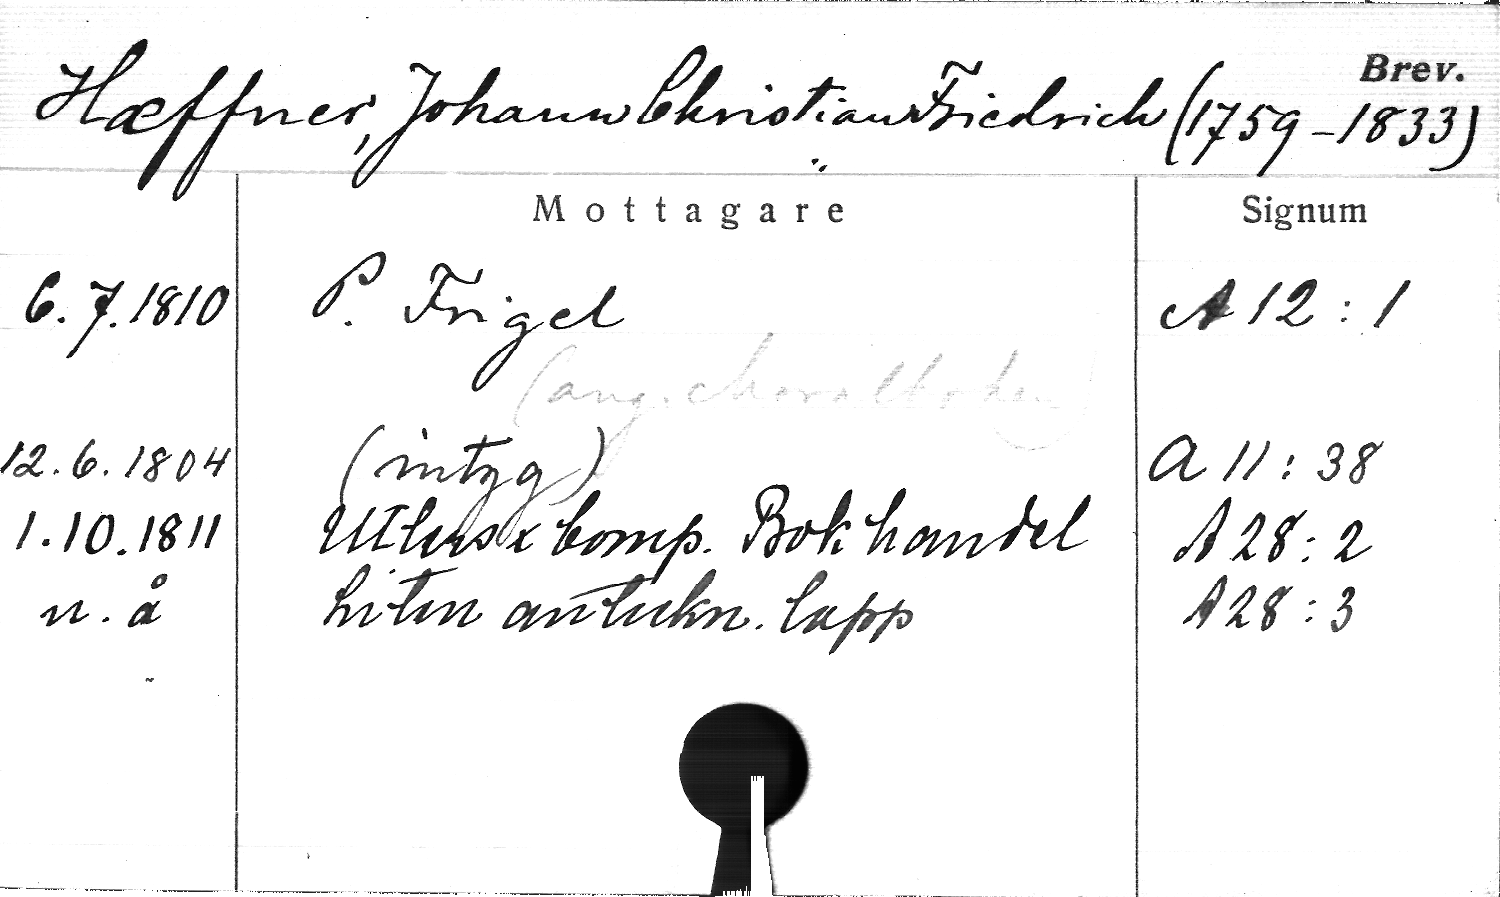 Brev.
Hæffner, Johann Christian Friedrich (1759-1833)
Mottagare Signum
6.7.1810 P. Frigel A 12 : 1
(ang. choralboken)
12.6.1804 (intyg) A 11 : 38
1.10.1811 & Comp. Bokhandel A 28 : 2
n. å Liten anteckn. lapp A 28 : 3